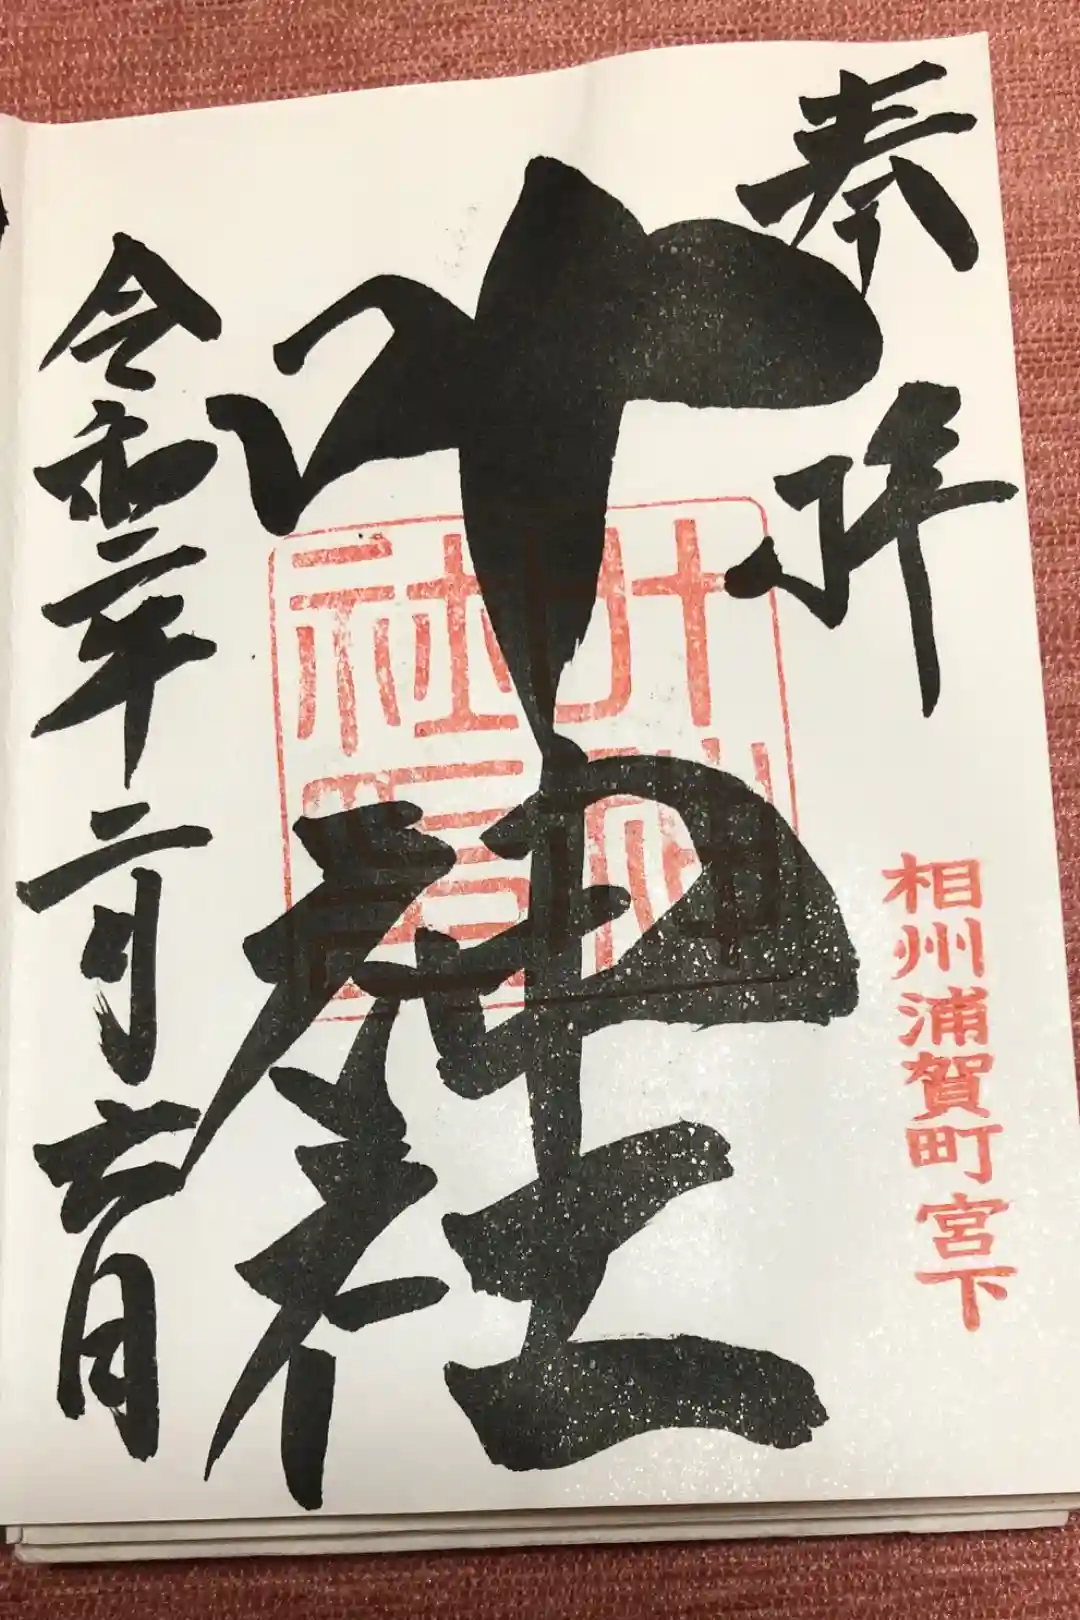 奉拝
相州浦賀町宮下
叶神社
叶神社
令和二年二月六日